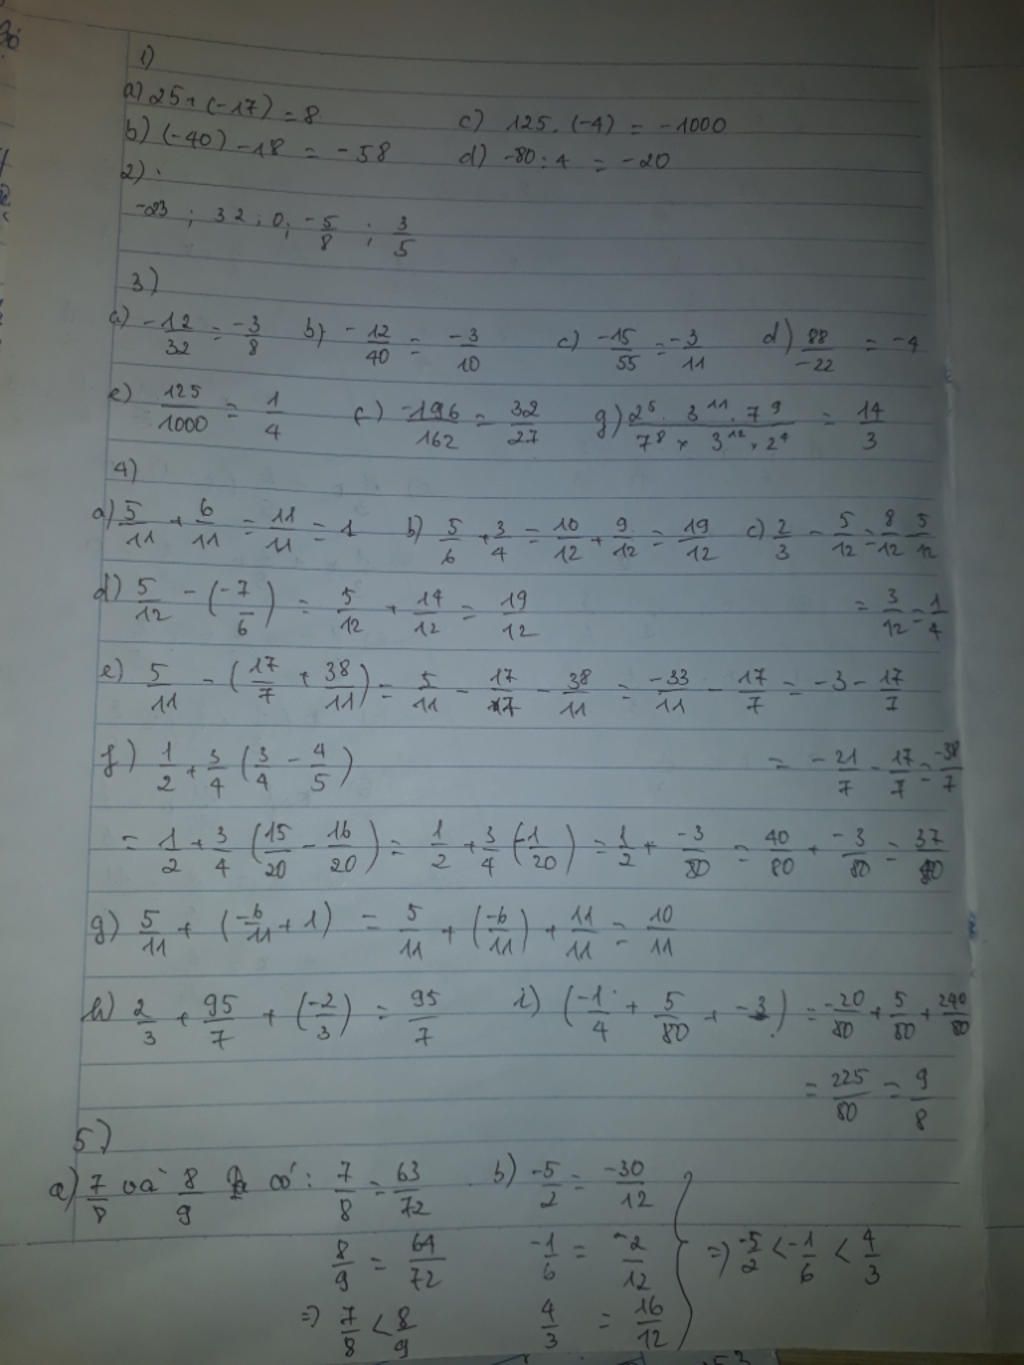 1)
a) 25 + (-17) = 8
c) 125 . (-4) = -1000
b) (-40) - 18 = -58
d) -80 : 4 = -20
2)
-23 ; 32 ; 0 ; -5/8 ; 3/5
3)
a) -12/32 = -3/8 b) -12/40 = -3/10 c) -15/55 = -3/11 d) 88/-22 = -4
e) 125/1000 = 1/4 f) -196/162 = 32/27 g) 2^5 . 3^11 . 7^9 / 7^8 x 3^12 x 2^4 = 14/3
4)
a) 5/11 + 6/11 = 11/11 = 1 b) 5/6 + 3/4 = 10/12 + 9/12 = 19/12 c) 2/3 - 5/12 = 8/12 - 5/12
d) 5/12 - (-7/6) = 5/12 + 14/12 = 19/12 = 3/12 = 1/4
e) 5/11 - (17/7 + 38/11) = 5/11 - 17/7 - 38/11 = -33/11 - 17/7 = -3 - 17/7
f) 1/2 + 3/4 (3/4 - 4/5) = -21/7 - 17/7 = -38/7
= 1/2 + 3/4 (15/20 - 16/20) = 1/2 + 3/4 (-1/20) = 1/2 + -3/80 = 40/80 + -3/80 = 37/80
g) 5/11 + (-6/11 + 1) = 5/11 + (-6/11) + 11/11 = 10/11
h) 2/3 + 95/7 + (-2/3) = 95/7 i) (-1/4 + 5/80 + -3) = -20/80 + 5/80 + 240/80
= 225/80 = 9/8
5)
a) 7/8 và 8/9 có : 7/8 = 63/72 b) -5/2 = -30/12
8/9 = 64/72 -1/6 = -2/12 => -5/2 < -1/6 < 4/3
=> 7/8 < 8/9 4/3 = 16/12